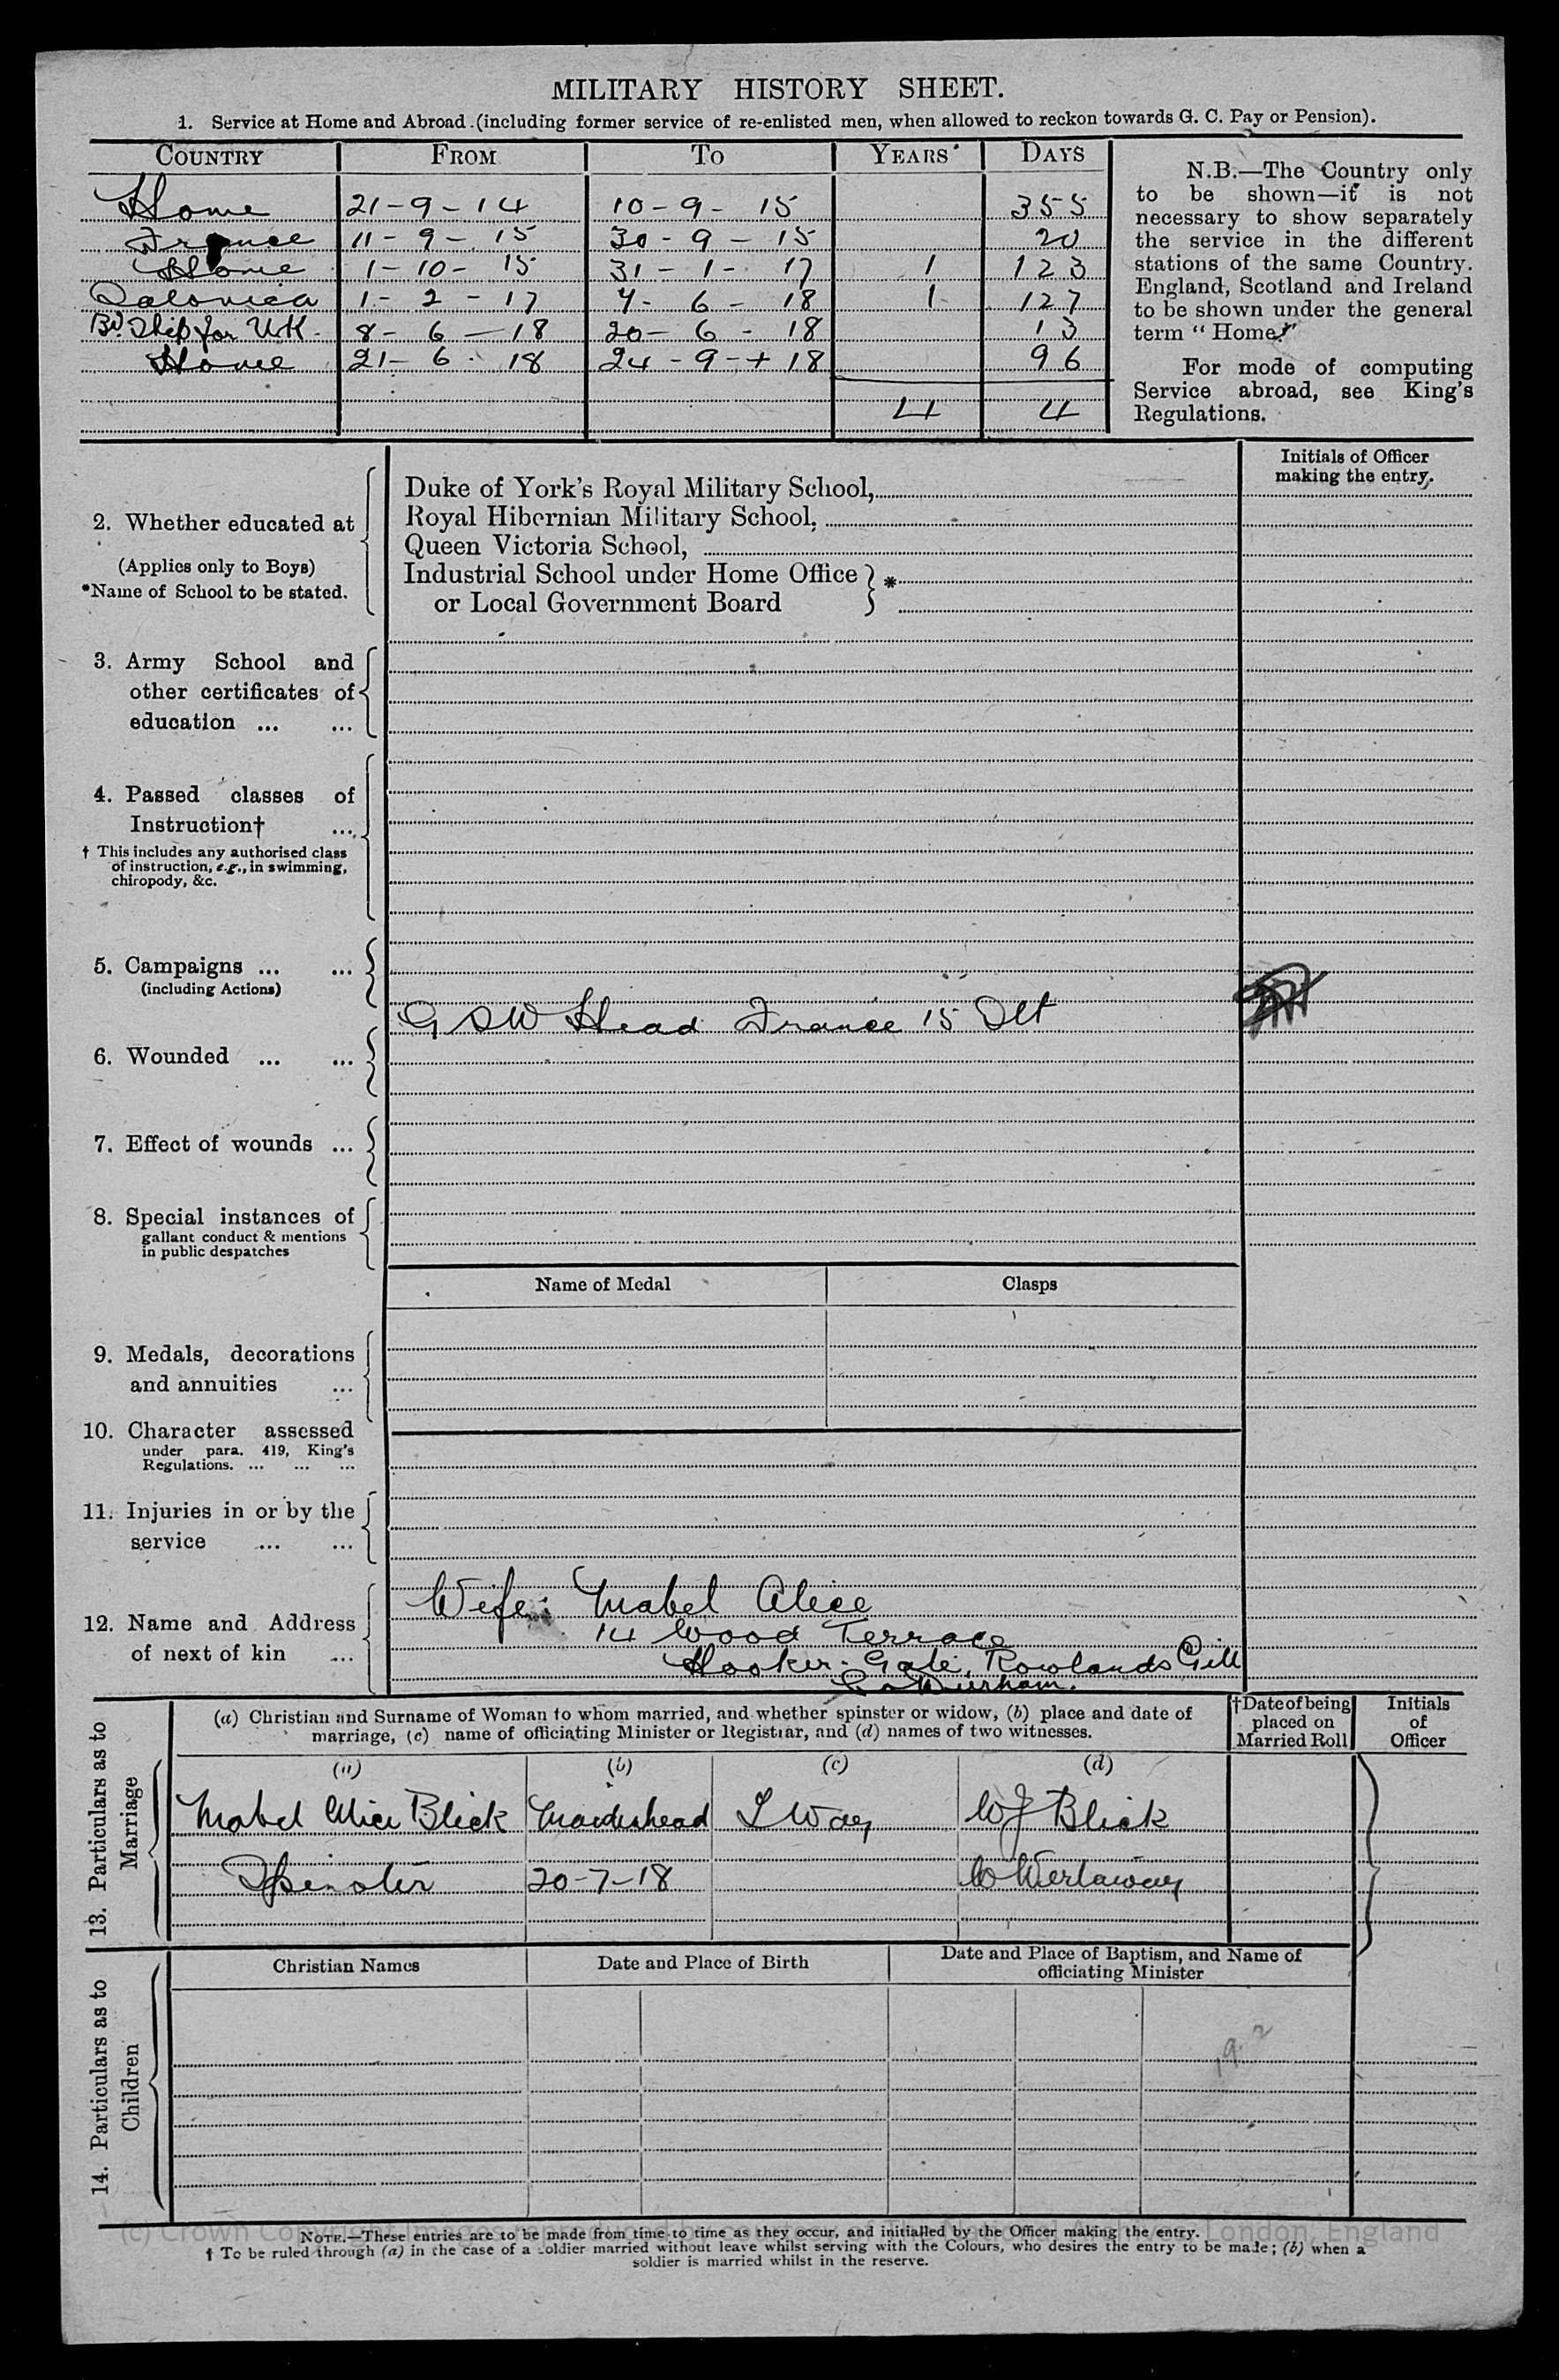 MILITARY HISTORY SHEET.
1. Service at Home and Abroad (including former service of re-enlisted men, when allowed to reckon towards G. C. Pay or Pension).
COUNTRY FROM TO YEARS DAYS
Home 21-9-14 10-9-15 355
France 11-9-15 30-9-15 20
Home 1-10-15 31-1-17 1 123
Salonica 1-2-17 7-6-18 1 127
Bd. Ship for UK. 8-6-18 20-6-18 13
Home 21-6-18 24-9-18 96
4 4
N.B.—The Country only
to be shown—it is not
necessary to show separately
the service in the different
stations of the same Country.
England, Scotland and Ireland
to be shown under the general
term "Home."
For mode of computing
Service abroad, see King's
Regulations.
Initials of Officer
making the entry.
2. Whether educated at
(Applies only to Boys)
*Name of School to be stated.
Duke of York's Royal Military School,
Royal Hibernian Military School,
Queen Victoria School,
Industrial School under Home Office } *
or Local Government Board
3. Army School and
other certificates of
education ... ...
4. Passed classes of
Instruction† ...
† This includes any authorised class
of instruction, e.g., in swimming,
chiropody, &c.
5. Campaigns ... ...
(including Actions)
G S W Head France 15
6. Wounded ... ...
7. Effect of wounds ...
8. Special instances of
gallant conduct & mentions
in public despatches
Name of Medal Clasps
9. Medals, decorations
and annuities ...
10. Character assessed
under para. 419, King's
Regulations. ... ... ...
11. Injuries in or by the
service ... ...
12. Name and Address
of next of kin ...
Wife: Mabel Alice
14 Wood Terrace
Hooker-Gate, Rowlands Gill
Co Durham.
13. Particulars as to
Marriage
(a) Christian and Surname of Woman to whom married, and whether spinster or widow, (b) place and date of
marriage, (c) name of officiating Minister or Registrar, and (d) names of two witnesses.
†Date of being
placed on
Married Roll
Initials
of
Officer
(a) (b) (c) (d)
Mabel Alice Blick Maidenhead W J Blick
Spinster 20-7-18
14. Particulars as to
Children
Christian Names Date and Place of Birth Date and Place of Baptism, and Name of
officiating Minister
NOTE.—These entries are to be made from time to time as they occur, and initialled by the Officer making the entry.
† To be ruled through (a) in the case of a soldier married without leave whilst serving with the Colours, who desires the entry to be made; (b) when a
soldier is married whilst in the reserve.